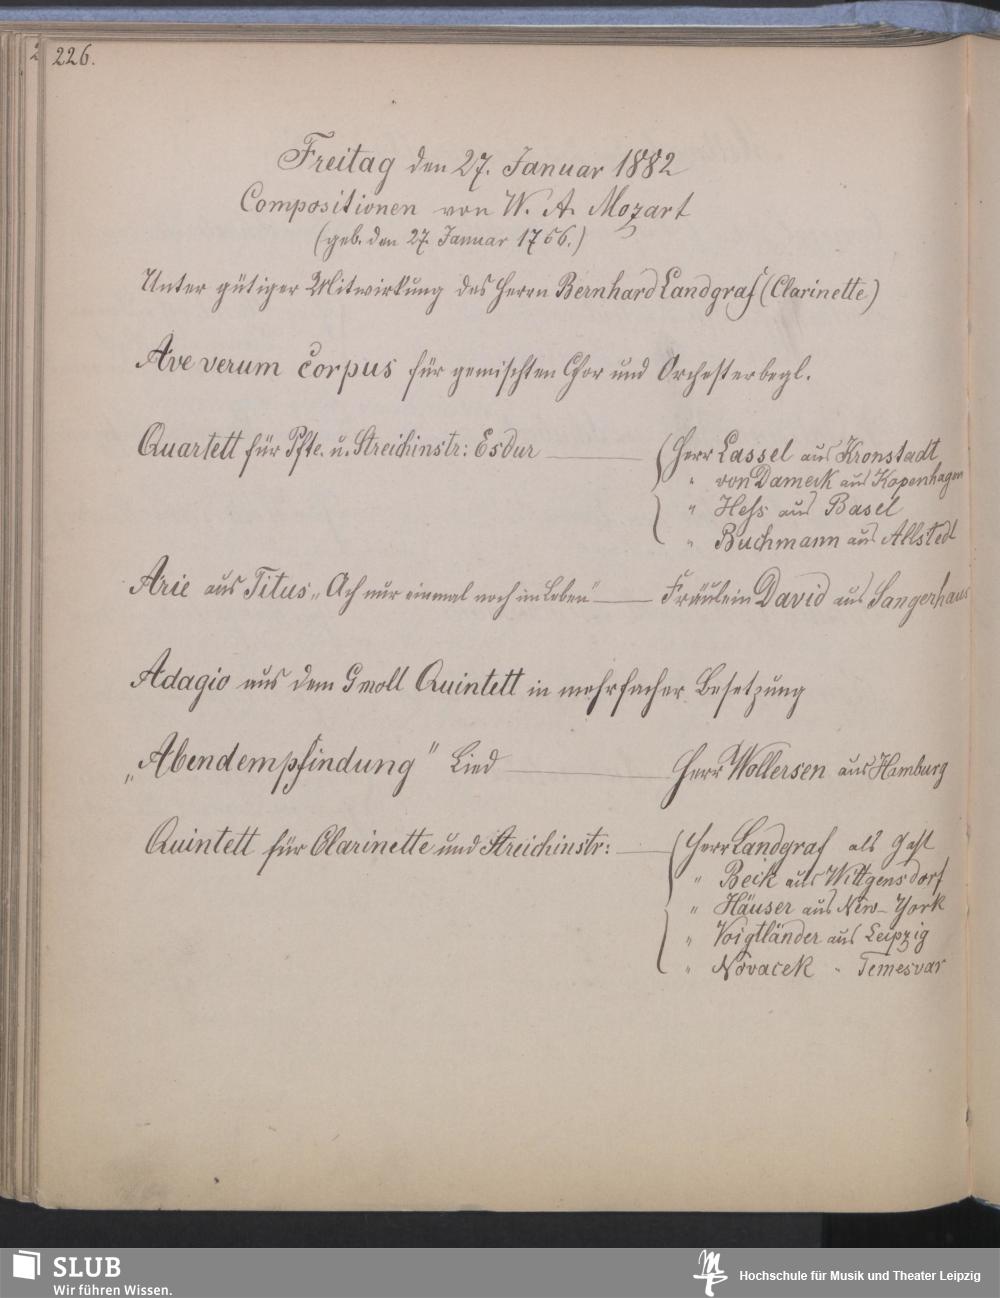 226.
Freitag den 27. Januar 1882
Compositionen von W. A. Mozart
(geb. den 27. Januar 1756.)
Unter gütiger Mitwirkung des Herrn Bernhard Landgraf (Clarinette)
Ave verum corpus für gemischten Chor und Orchesterbegl.
Quartett für Pfte. u. Streichinstr: Esdur — Herr Lassel aus Kronstadt
" von Dameck aus Kopenhagen
" Hess aus Basel
" Buchmann aus Allstedt
Arie aus Titus „Ach nur einmal noch im Leben" — Fräulein David aus Sangerhaus
Adagio aus dem Gmoll Quintett in mehrfacher Besetzung
„Abendempfindung" Lied — Herr Wollersen aus Hamburg
Quintett für Clarinette und Streichinstr: — Herr Landgraf als Gast
" Beik aus Wittgensdorf
" Häuser aus New-York
" Voigtländer aus Leipzig
" Novacek " Temesvar
SLUB
Wir führen Wissen.
Hochschule für Musik und Theater Leipzig